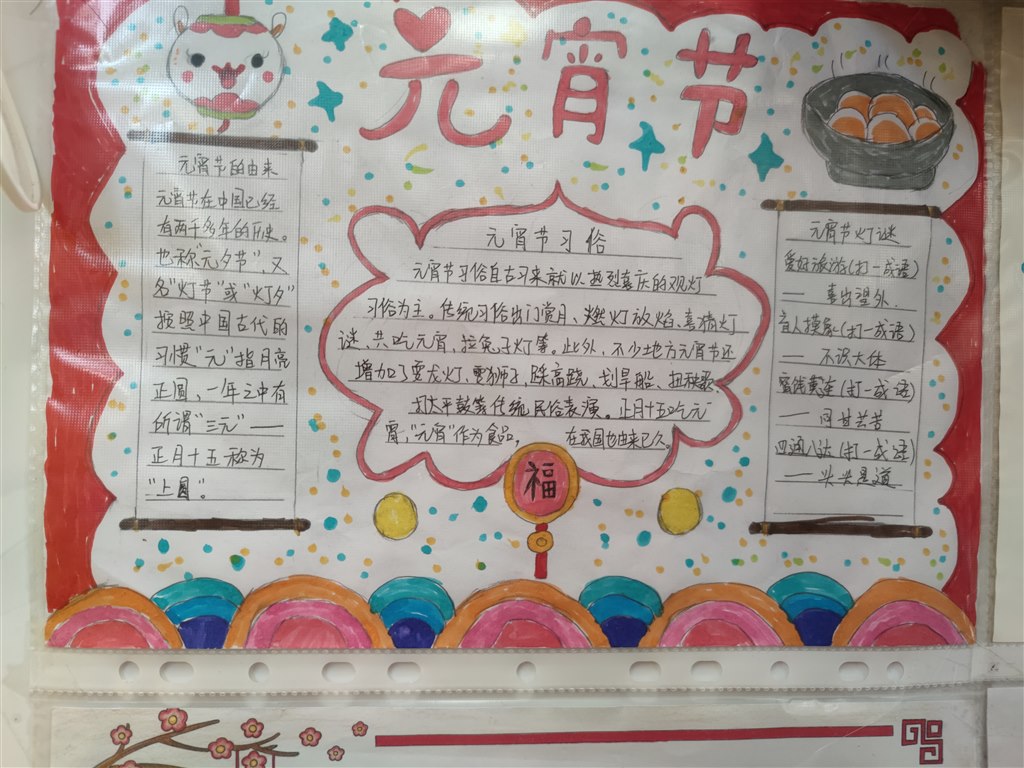 元宵节
元宵节的由来
元宵节在中国已经
有两千多年的历史。
也称"元夕节"，又
名"灯节"或"灯夕"
按照中国古代的
习惯"元"指月亮
正圆，一年之中有
所谓"三元"——
正月十五称为
"上圆"。
元宵节习俗
元宵节习俗自古习来就以热烈喜庆的观灯
习俗为主。传统习俗出门赏月、燃灯放焰、喜猜灯
谜、共吃元宵，拉兔子灯等。此外，不少地方元宵节还
增加了耍龙灯、耍狮子，踩高跷，划旱船、扭秧歌、
打太平鼓等传统民俗表演。正月十五吃元
宵，"元宵"作为食品， 在我国也由来已久。
福
元宵节灯谜
爱好旅游(打一成语)
— 喜出望外.
盲人摸象(打一成语)
— 不识大体
蜜饯黄连(打一成语)
— 同甘共苦
四通八达(打一成语)
— 头头是道